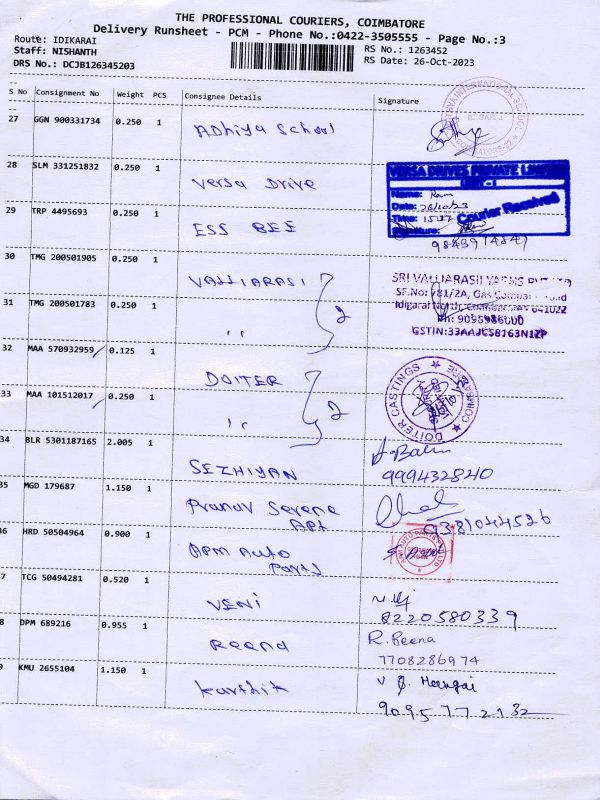 THE PROFESSIONAL COURIERS, COIMBATORE
Delivery Runsheet - PCM - Phone No.:0422-3505555 - Page No.:3
Route: IDIKARAI
Staff: NISHANTH
RS No.: 1263452
DRS No.: DCJB126345203
RS Date: 26-Oct-2023
S No Consignment No Weight PCS Consignee Details Signature
27 GGN 900331734 0.250 1 Adhiya School
28 SLM 331251832 0.250 1 Versa Drive
VERSA DRIVES PRIVATE LIMITED
UNIT - I
Name: Ram
Date: 26/10/23
Time: 15:27
Courier Received
Signature:
29 TRP 4495693 0.250 1 ESS BEE
9843914847
30 TMG 200501905 0.250 1 VALLIARASI
SRI VALLIARASII YARNS PVT LTD
SF.No: 781/2A,
Idigarai North, Coimbatore 641022
31 TMG 200501783 0.250 1 " 2
32 MAA 570932959 0.125 1 DOITER
DOITER CASTINGS COIMBATORE
33 MAA 101512017 0.250 1 " 2
34 BLR 5301187165 2.005 1 SEZHIYAN
999432840
35 MGD 179687 1.150 1 Pranav Serene
Apt
9381044526
36 HRD 50504964 0.900 1 APM Auto
Parts
7 TCG 50494281 0.520 1 VENI
8220580339
8 DPM 689216 0.955 1 Reena
R. Reena
7708286974
9 KMU 2655104 1.150 1 Karthik
9095772132